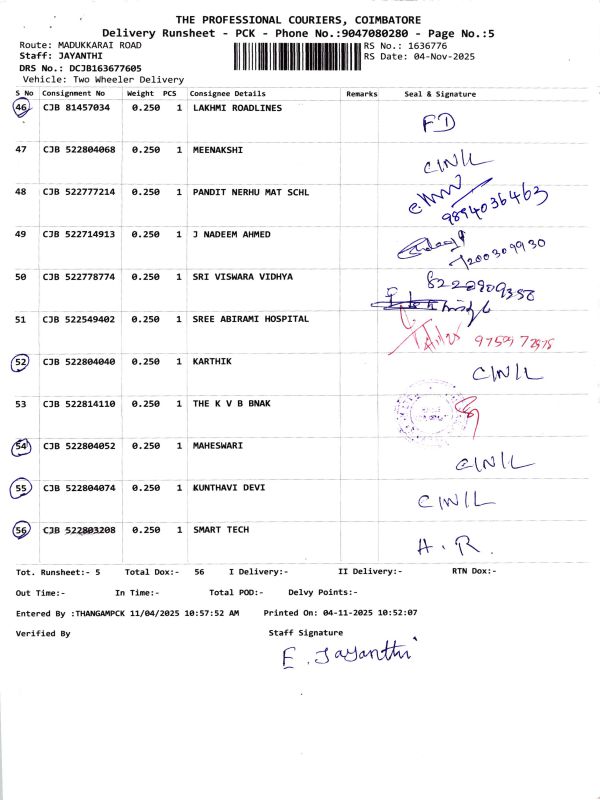 THE PROFESSIONAL COURIERS, COIMBATORE
Delivery Runsheet - PCK - Phone No.:9047080280 - Page No.:5
Route: MADUKKARAI ROAD RS No.: 1636776
Staff: JAYANTHI RS Date: 04-Nov-2025
DRS No.: DCJB163677605
Vehicle: Two Wheeler Delivery
S No Consignment No Weight PCS Consignee Details Remarks Seal & Signature
46 CJB 81457034 0.250 1 LAKHMI ROADLINES FD
47 CJB 522804068 0.250 1 MEENAKSHI CINIL
48 CJB 522777214 0.250 1 PANDIT NERHU MAT SCHL 9894036463
49 CJB 522714913 0.250 1 J NADEEM AHMED 7200309930
50 CJB 522778774 0.250 1 SRI VISWARA VIDHYA
51 CJB 522549402 0.250 1 SREE ABIRAMI HOSPITAL
52 CJB 522804040 0.250 1 KARTHIK CINIL
53 CJB 522814110 0.250 1 THE K V B BNAK
54 CJB 522804052 0.250 1 MAHESWARI CINIL
55 CJB 522804074 0.250 1 KUNTHAVI DEVI CINIL
56 CJB 522803208 0.250 1 SMART TECH A.R.
Tot. Runsheet:- 5 Total Dox:- 56 I Delivery:- II Delivery:- RTN Dox:-
Out Time:- In Time:- Total POD:- Delvy Points:-
Entered By :THANGAMPCK 11/04/2025 10:57:52 AM Printed On: 04-11-2025 10:52:07
Verified By Staff Signature
E. Jayanthi